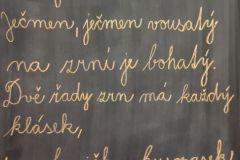 Ječmen, ječmen vousatý
na zrní je bohatý.
Dvě řady zrn má každý
klásek,